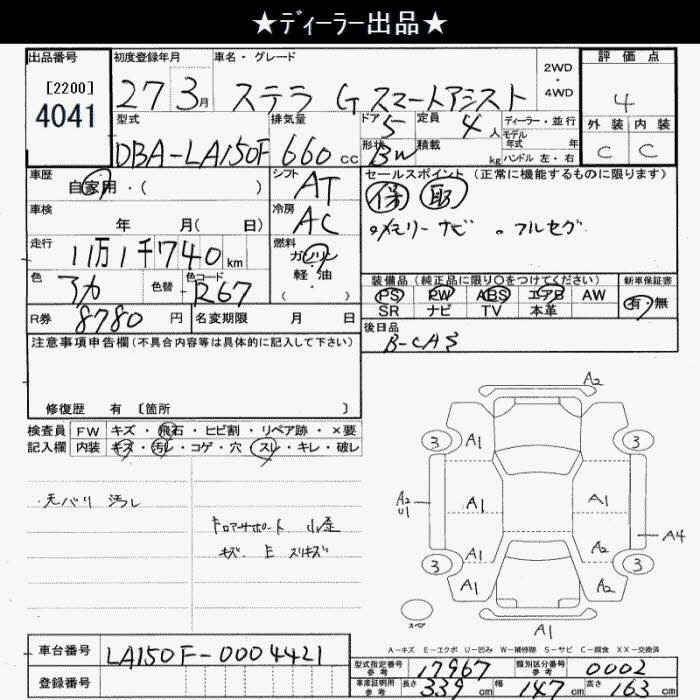 ★ディーラー出品★
出品番号 初度登録年月 車名・グレード 評価点
[2200]
4041
27 3月 ステラ G スマートアシスト
2WD
・
4WD
4
型式 排気量 ドア 定員 ディーラー・並行
DBA-LA150F 660 cc 5 4人
モデル年式 年
形状 積載 外装 内装
BW kg ハンドル 左・右 C C
車歴 シフト セールスポイント(正常に機能するものに限ります)
自家用・( ) AT 保 取
車検 冷房
年 月( 日) AC 。メモリーナビ 。フルセグ
走行 燃料
11万1千740km ガソリン
軽・油
・( )
色 色替 色コード
アカ R67
装備品(純正品に限り○をつけてください) 新車保証書
PS PW ABS エアB AW 有・無
SR ナビ TV 本革
R券 8780円 名変期限 月 日
後日品
B-CAS
注意事項申告欄(不具合内容等は具体的に記入して下さい)
修復歴 有 〔箇所 〕
検査員 FW キズ・飛石・ヒビ割・リペア跡・×要
記入欄 内装 キズ・汚レ・コゲ・穴・スレ・キレ・破レ
・天バリ 汚レ
キズ E スリキズ
A2
3 A1 3
A2
U1
A1 A1
A4
A1 A2
3 A1 A2 3
スペア
A1
A-キズ E-エクボ U-凹み W-補修跡 S-サビ C-腐食 XX-交換済
車台番号 LA150F-0004421
型式指定番号 参考 17967 類別区分番号 参考 0002
登録番号
車庫証明用 参考 長さ 339cm 幅 147cm 高さ 163cm